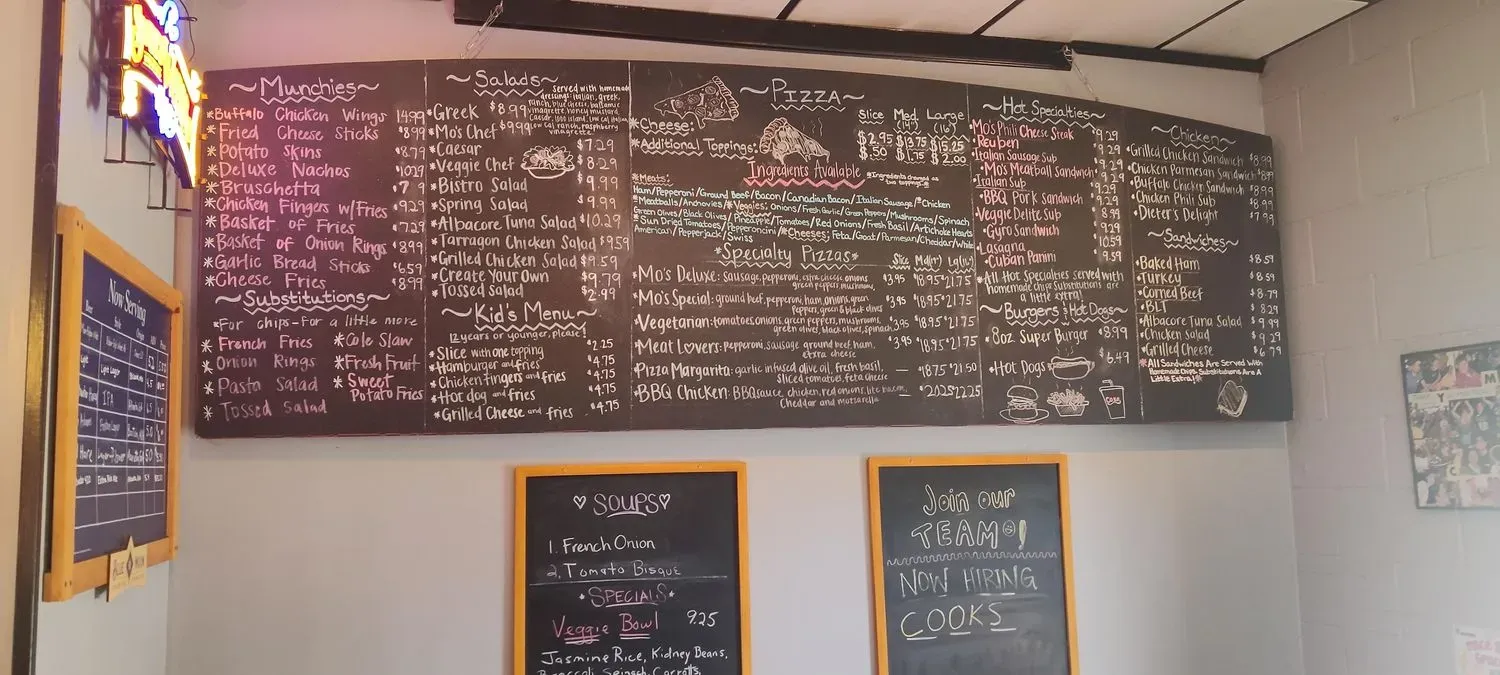 ~Munchies~
*Buffalo Chicken Wings 1499
*Fried Cheese Sticks $899
*Potato Skins $879
*Deluxe Nachos 1029
*Bruschetta
*Chicken Fingers w/Fries $929
*Basket of Fries 729
*Basket of Onion Rings $899
*Garlic Bread Sticks $659
*Cheese Fries $899
~Substitutions~
*For chips-For a little more
*French Fries *Cole Slaw
*Onion Rings *Fresh Fruit
*Pasta Salad *Sweet Potato Fries
*Tossed Salad
~Salads~
served with homemade
dressings: italian, greek,
ranch, blue cheese, balsamic
vinagrette, honey mustard,
caesar, 1000 island, low cal italian,
low cal ranch, raspberry
vinagrette
*Greek $8.99
*Mo's Chef $9.99
*Caesar $7.29
*Veggie Chef $8.29
*Bistro Salad $9.99
*Spring Salad $9.99
*Albacore Tuna Salad $10.29
*Tarragon Chicken Salad $9.59
*Grilled Chicken Salad $9.59
*Create Your Own $9.79
*Tossed Salad $2.99
~Kid's Menu~
12 years or younger, please!
*Slice with one topping $2.25
*Hamburger and fries $4.75
*Chicken fingers and fries $4.75
*Hot dog and fries $4.75
*Grilled Cheese and fries $4.75
~Pizza~
Slice Med. Large
(14") (16")
*Cheese: $2.95 $13.75 $15.25
*Additional Toppings: $.50 $1.75 $2.00
Ingredients Available
*Ingredients charged as
two toppings*
*Meats:
Ham/Pepperoni/Ground Beef/Bacon/Canadian Bacon/Italian Sausage/*Chicken
*Meatballs/Anchovies/*Veggies: Onions/Fresh Garlic/Green Peppers/Mushrooms/Spinach
Green Olives/Black Olives/Pineapple/Tomatoes/Red Onions/Fresh Basil/Artichoke Hearts
*Sun Dried Tomatoes/Pepperoncini/*Cheeses: Feta/Goat/Parmesan/Cheddar/White
American/Pepperjack/Swiss
*Specialty Pizzas*
Slice Md(14") Lg(16")
*Mo's Deluxe: sausage, pepperoni, extra cheese, onions $3.95 $18.95 $21.75
green peppers, mushrooms,
*Mo's Special: ground beef, pepperoni, ham, onions, green $3.95 $18.95 $21.75
peppers, green & black olives
*Vegetarian: tomatoes, onions, green peppers, mushrooms, $3.95 $18.95 $21.75
green olives, black olives, spinach
*Meat Lovers: pepperoni, sausage, ground beef, ham, $3.95 $18.95 $21.75
extra cheese
*Pizza Margarita: garlic infused olive oil, fresh basil, — $18.75 $21.50
sliced tomatoes, feta cheese
*BBQ Chicken: BBQ sauce, chicken, red onions, lite bacon, — $20.25 $22.25
Cheddar and motzarella
~Hot Specialties~
*Mo's Phili Cheese Steak 9.29
*Reuben 9.29
*Italian Sausage Sub 9.29
*Mo's Meatball Sandwich 9.29
*Italian Sub 9.29
*BBQ Pork Sandwich 9.29
*Veggie Delite Sub 8.99
*Gyro Sandwich 9.29
*Lasagna 10.59
*Cuban Panini 9.59
*All Hot Specialties served with
homemade chips. Substitutions are
a little extra!
~Burgers & Hot Dogs~
*8oz Super Burger $8.99
*Hot Dogs $6.49
Coke
~Chicken~
*Grilled Chicken Sandwich $8.99
*Chicken Parmesan Sandwich $8.99
*Buffalo Chicken Sandwich $8.99
*Chicken Phili Sub $8.99
*Dieter's Delight $7.99
~Sandwiches~
*Baked Ham $8.59
*Turkey $8.59
*Corned Beef $8.79
*BLT $8.29
*Albacore Tuna Salad $9.99
*Chicken Salad $9.29
*Grilled Cheese $6.79
*All Sandwiches Are Served With
Homemade Chips. Substitutions Are A
Little Extra!
Now Serving
Beer
IPA
Blue Moon
♡ SOUPS ♡
1. French Onion
2. Tomato Bisque
*SPECIALS*
Veggie Bowl 9.25
Jasmine Rice, Kidney Beans,
Broccoli, Spinach, Carrots,
Join our
TEAM!
NOW HIRING
COOKS